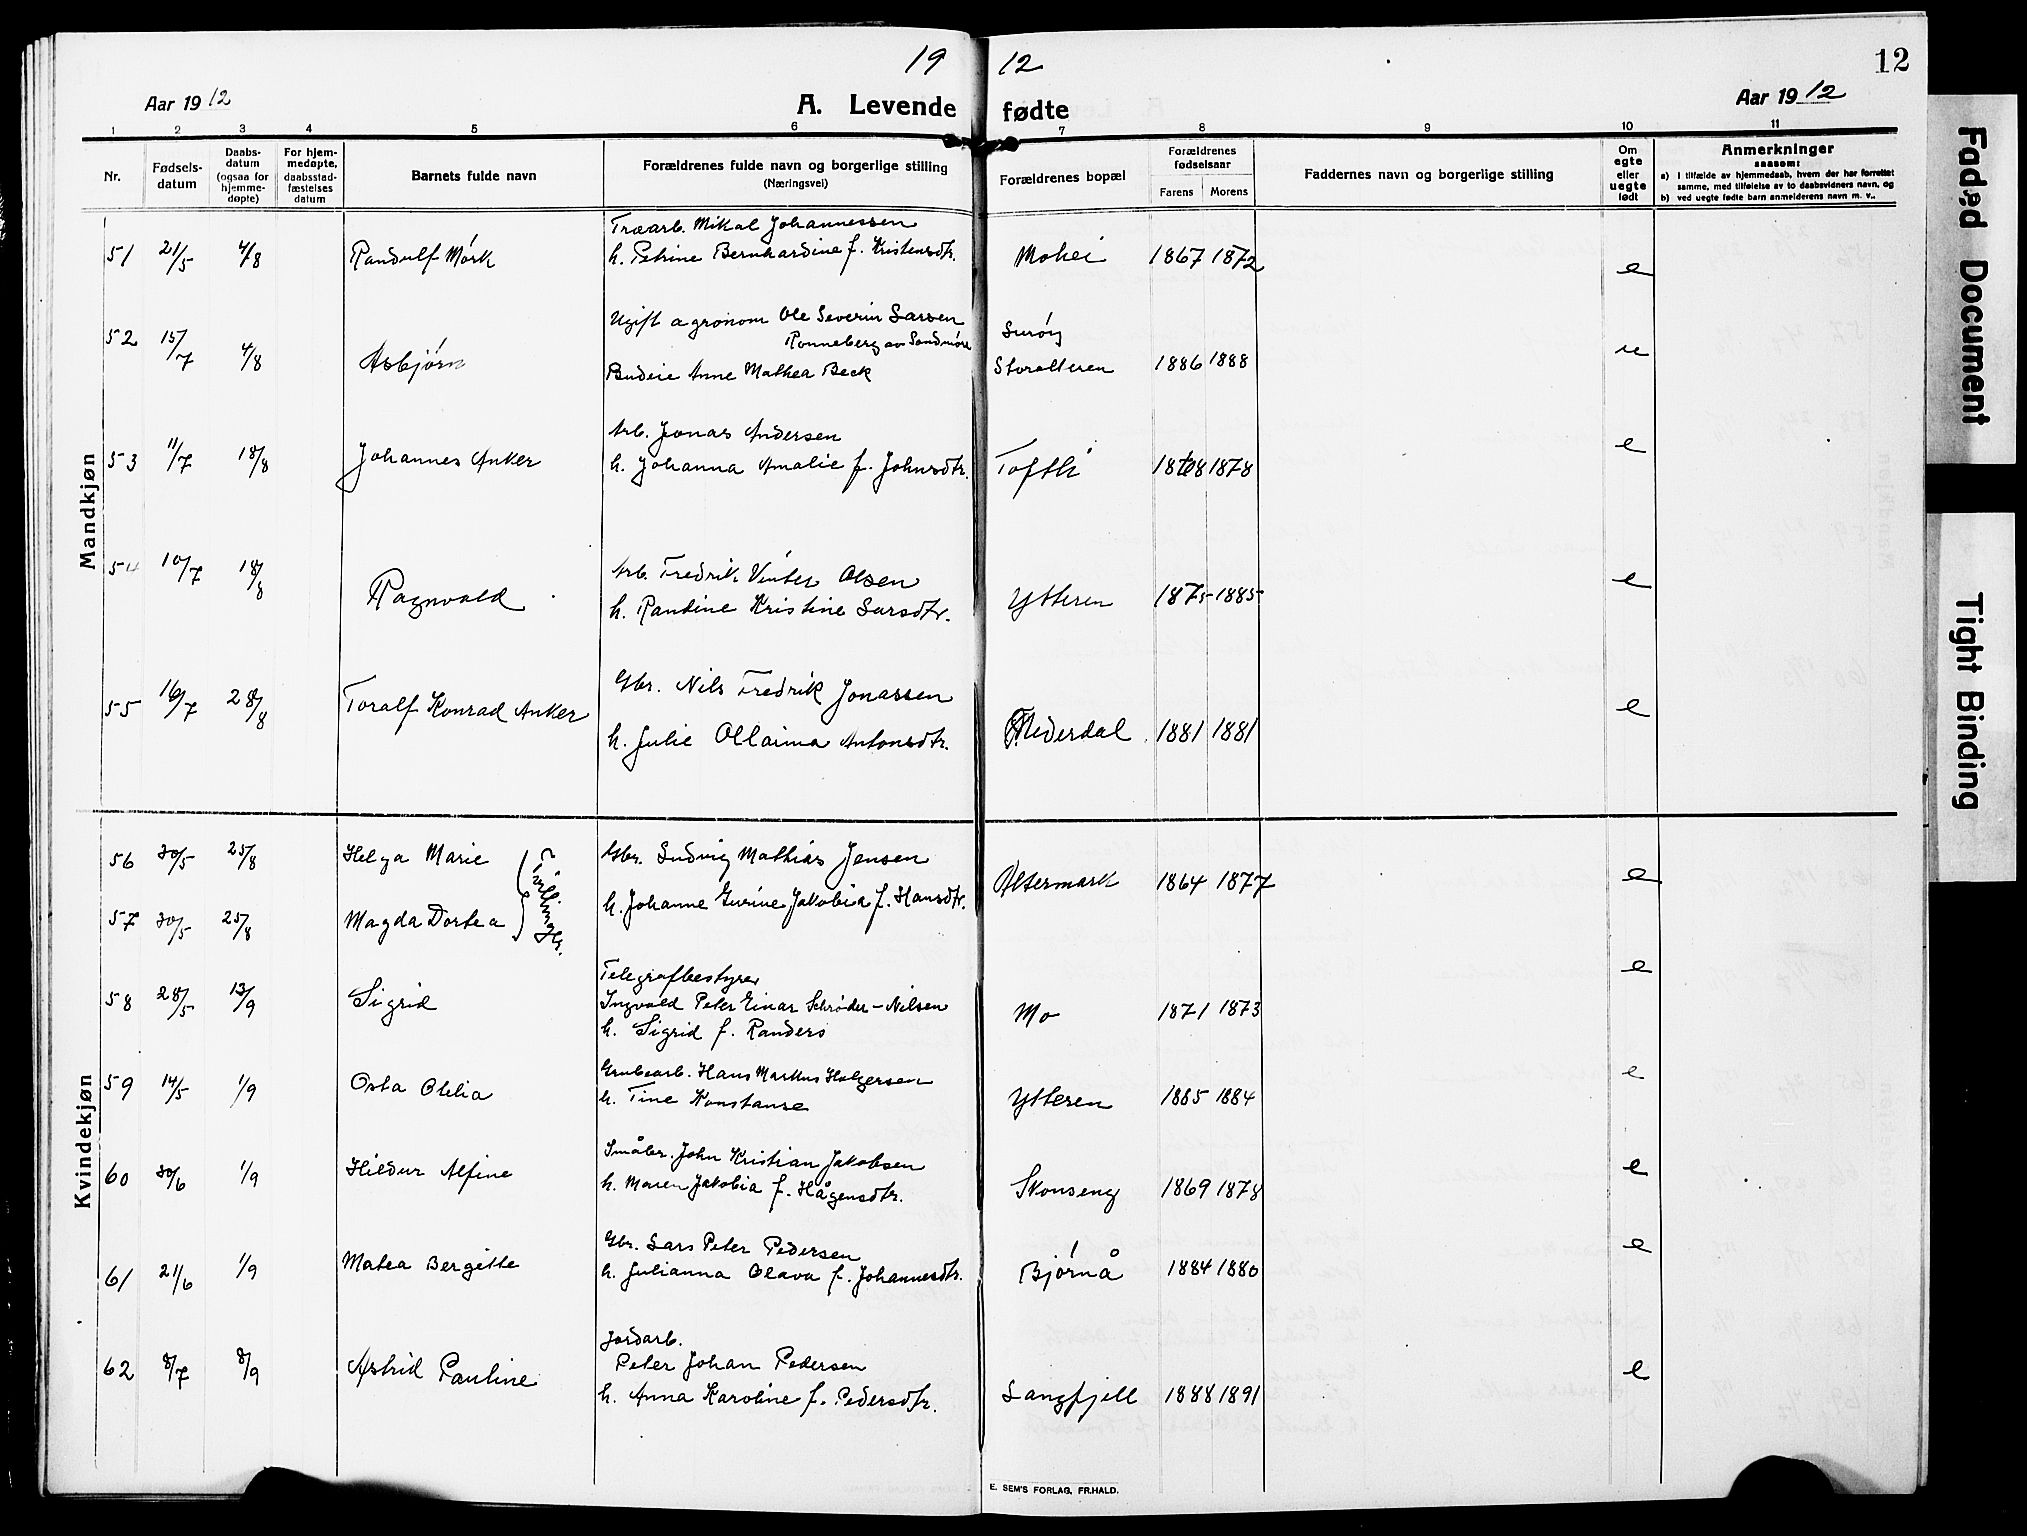 19 12
12
Aar 1912
A. Levende fødte
Aar 1912
1 2 3 4 5 6 7 8 9 10 11
Nr.
Fødsels-
datum
Daabs-
datum
(ogsaa for
hjemme-
døpte)
For hjem-
medøpte,
daabsstad-
fæstelses
datum
Barnets fulde navn
Forældrenes fulde navn og borgerlige stilling
(Næringsvei)
Forældrenes bopæl
Forældrenes
fødselsaar
Farens Morens
Faddernes navn og borgerlige stilling
Om
egte
eller
uegte
født
Anmerkninger
saasom:
a) I tilfælde av hjemmedaab, hvem der har forrettet
samme, med tilføielse av to daabsvidners navn, og
b) ved uegte fødte barn anmelderens navn m. v..
Mandkjøn
Træarb. Mikal Johannessen
51 21/5 4/8 Randulf Mørk h. Petrine Bernhardine f. Kristensdtr. Mohei 1867 1872 e
Ugift agronom Ole Severin Larsen
Ronneberg av Søndmøre
52 15/7 4/8 Asbjørn Budeie Anne Mathea Beck Storalteren 1886 1888 ue
Arb. Jonas Andersen
53 11/7 18/8 Johannes Anker h. Johanna Amalie f. Johnsdtr. Toftli 1868 1878 e
Arb. Fredrik Vinter Olsen
54 10/7 18/8 Ragnvald h. Rantine Kristine Larsdtr. Ytteren 1875 1885 e
Gbr. Nils Fredrik Jonassen
55 16/7 28/8 Toralf Konrad Anker h. Julie Ollaima Antonsdtr. 1881 1881 e
Kvindekjøn
56 30/5 25/8 Helga Marie Gbr. Ludvig Mathias Jensen
Tvillinger. Altermark 1864 1877 e
57 30/5 25/8 Magda Dortea h. Johanne Jakobia f. Hansdtr.
Telegrafbestyrer
58 28/5 13/9 Sigrid Ingvald Peter Einar Schrøder-Nilsen Mo 1871 1873 e
h. Sigrid f. Randers
59 14/5 1/9 Osta Olelia Grubearb. Hans Markus Holgersen
h. Tine Konstanse Ytteren 1885 1884 e
60 30/6 1/9 Hildur Alfine Småbr. John Kristian Jakobsen
h. Maren Jakobia f. Hågensdtr. Skonseng 1869 1878 e
Gbr. Lars Peter Pedersen
61 21/6 1/9 Matea Bergitte h. Julianna Olava f. Johannesdtr. Bjørnå 1884 1880 e
Jordarb.
62 8/7 8/9 Astrid Pauline Peter Johan Pedersen
h. Anna Karoline f. Pedersdtr. Langfjell 1888 1891 e
E. SEM'S FORLAG, FR.HALD.
Faded Document
Tight Binding